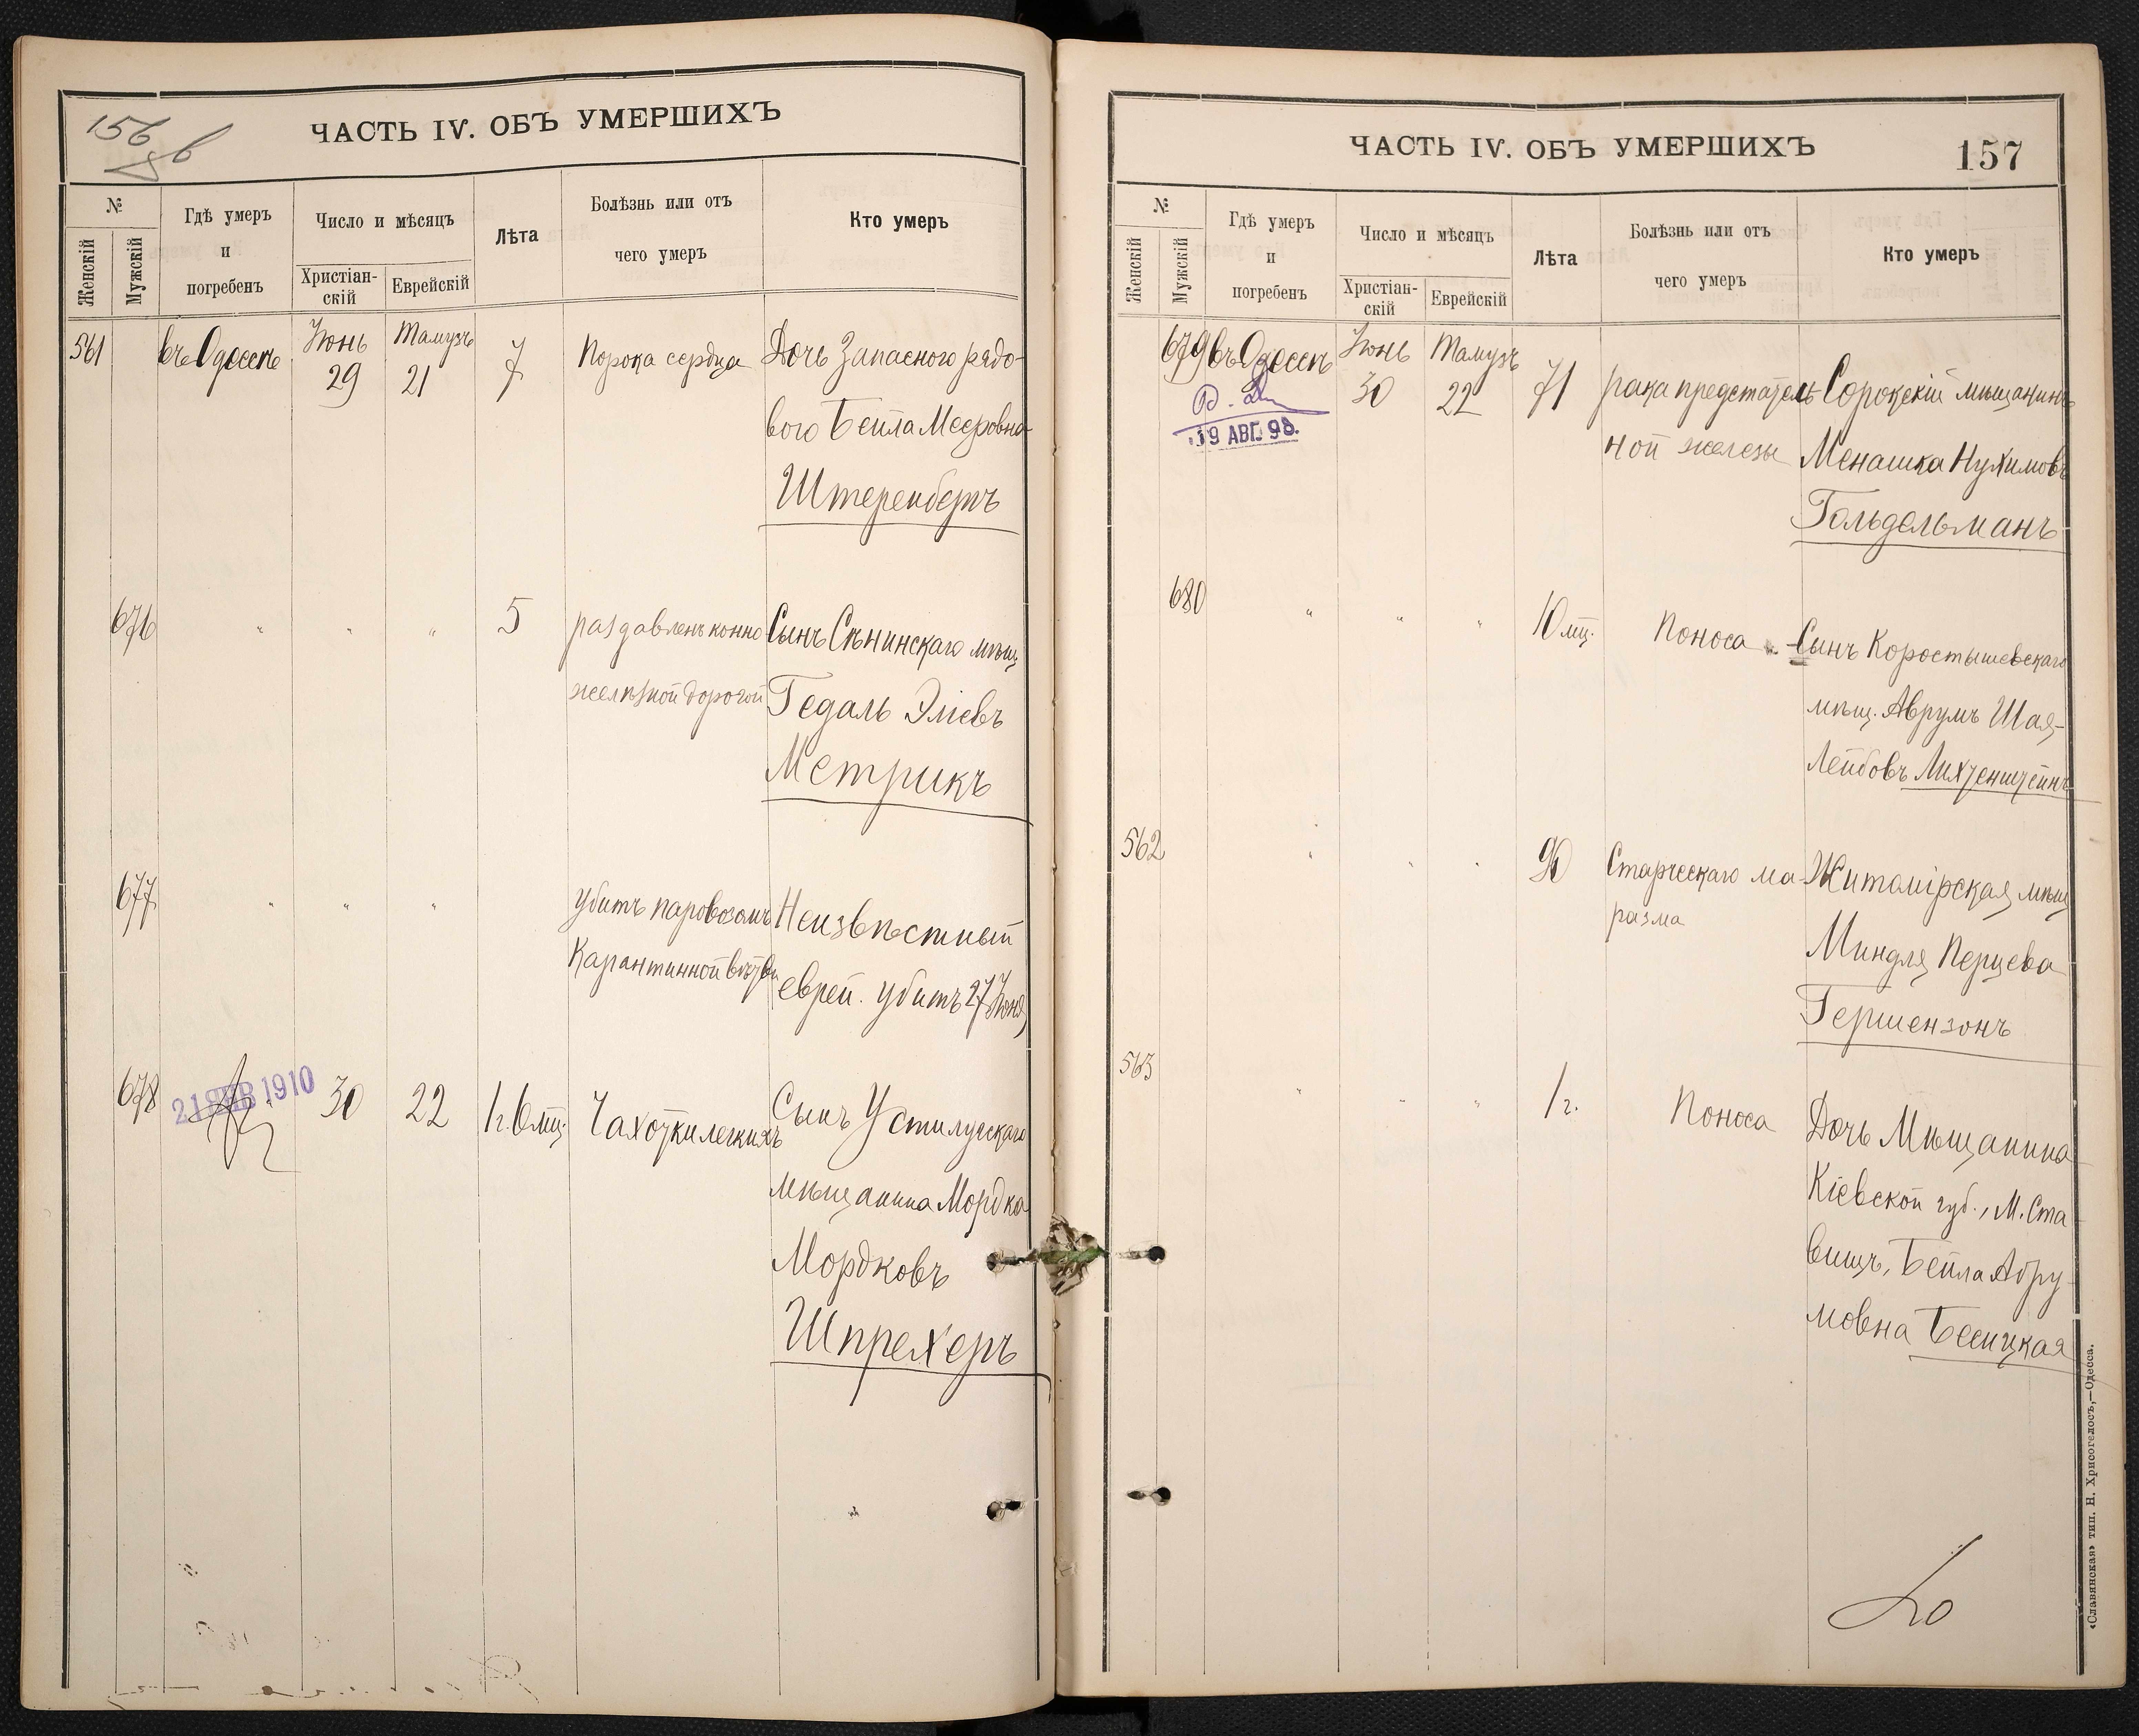 156
ЧАСТЬ IV. ОБЪ УМЕРШИХЪ
№
Женскій
Мужскій
Гдѣ умеръ
и
погребенъ
Число и мѣсяцъ
Христіан-
скій
Еврейскій
Лѣта
Болѣзнь или отъ
чего умеръ
Кто умеръ
561 въ Одессѣ Іюнь 29 Тамузъ 21 7 Порока сердца Дочь Запасного рядо-
вого Бейла Мееровна
Штеренбергъ
676 " " " 5 раздавленъ конно Сынъ Сѣнинскаго мѣщ.
желѣзной дорогой Гедаль Эліевъ
Метрикъ
677 " " " Убитъ паровозомъ Неизвѣстный
Карантинной вѣтви еврей. убитъ 27 Іюня
678 21 ЯНВ 1910 30 22 1 г. 6 мц. Чахотки легкихъ Сынъ Устилугскаго
мѣщанина Мордка
Мордковъ
Шпрехеръ
ЧАСТЬ IV. ОБЪ УМЕРШИХЪ
157
№
Женскій
Мужскій
Гдѣ умеръ
и
погребенъ
Число и мѣсяцъ
Христіан-
скій
Еврейскій
Лѣта
Болѣзнь или отъ
чего умеръ
Кто умеръ
679 въ Одессѣ Іюнь 30 Тамузъ 22 71 рака предстатель Сорокскій мѣщанинъ
19 АВГ. 98.
ной железы Менашка Нухимовъ
Гольдельманъ
680 " " " 10 мц. Поноса Сынъ Коростышевскаго
мѣщ. Аврумъ Шая-
Лейбовъ Лихтенштейнъ
562 " " " 90 Старческаго ма- Житомірская мѣщ
разма Миндля Перцева
Гершензонъ
563 " " " 1 г. Поноса Дочь Мѣщанина
Кіевской губ., М. Ста-
вищъ, Бейла Абру-
мовна Бесицкая
«Славянская» тип. Н. Хрисогелосъ,—Одесса.